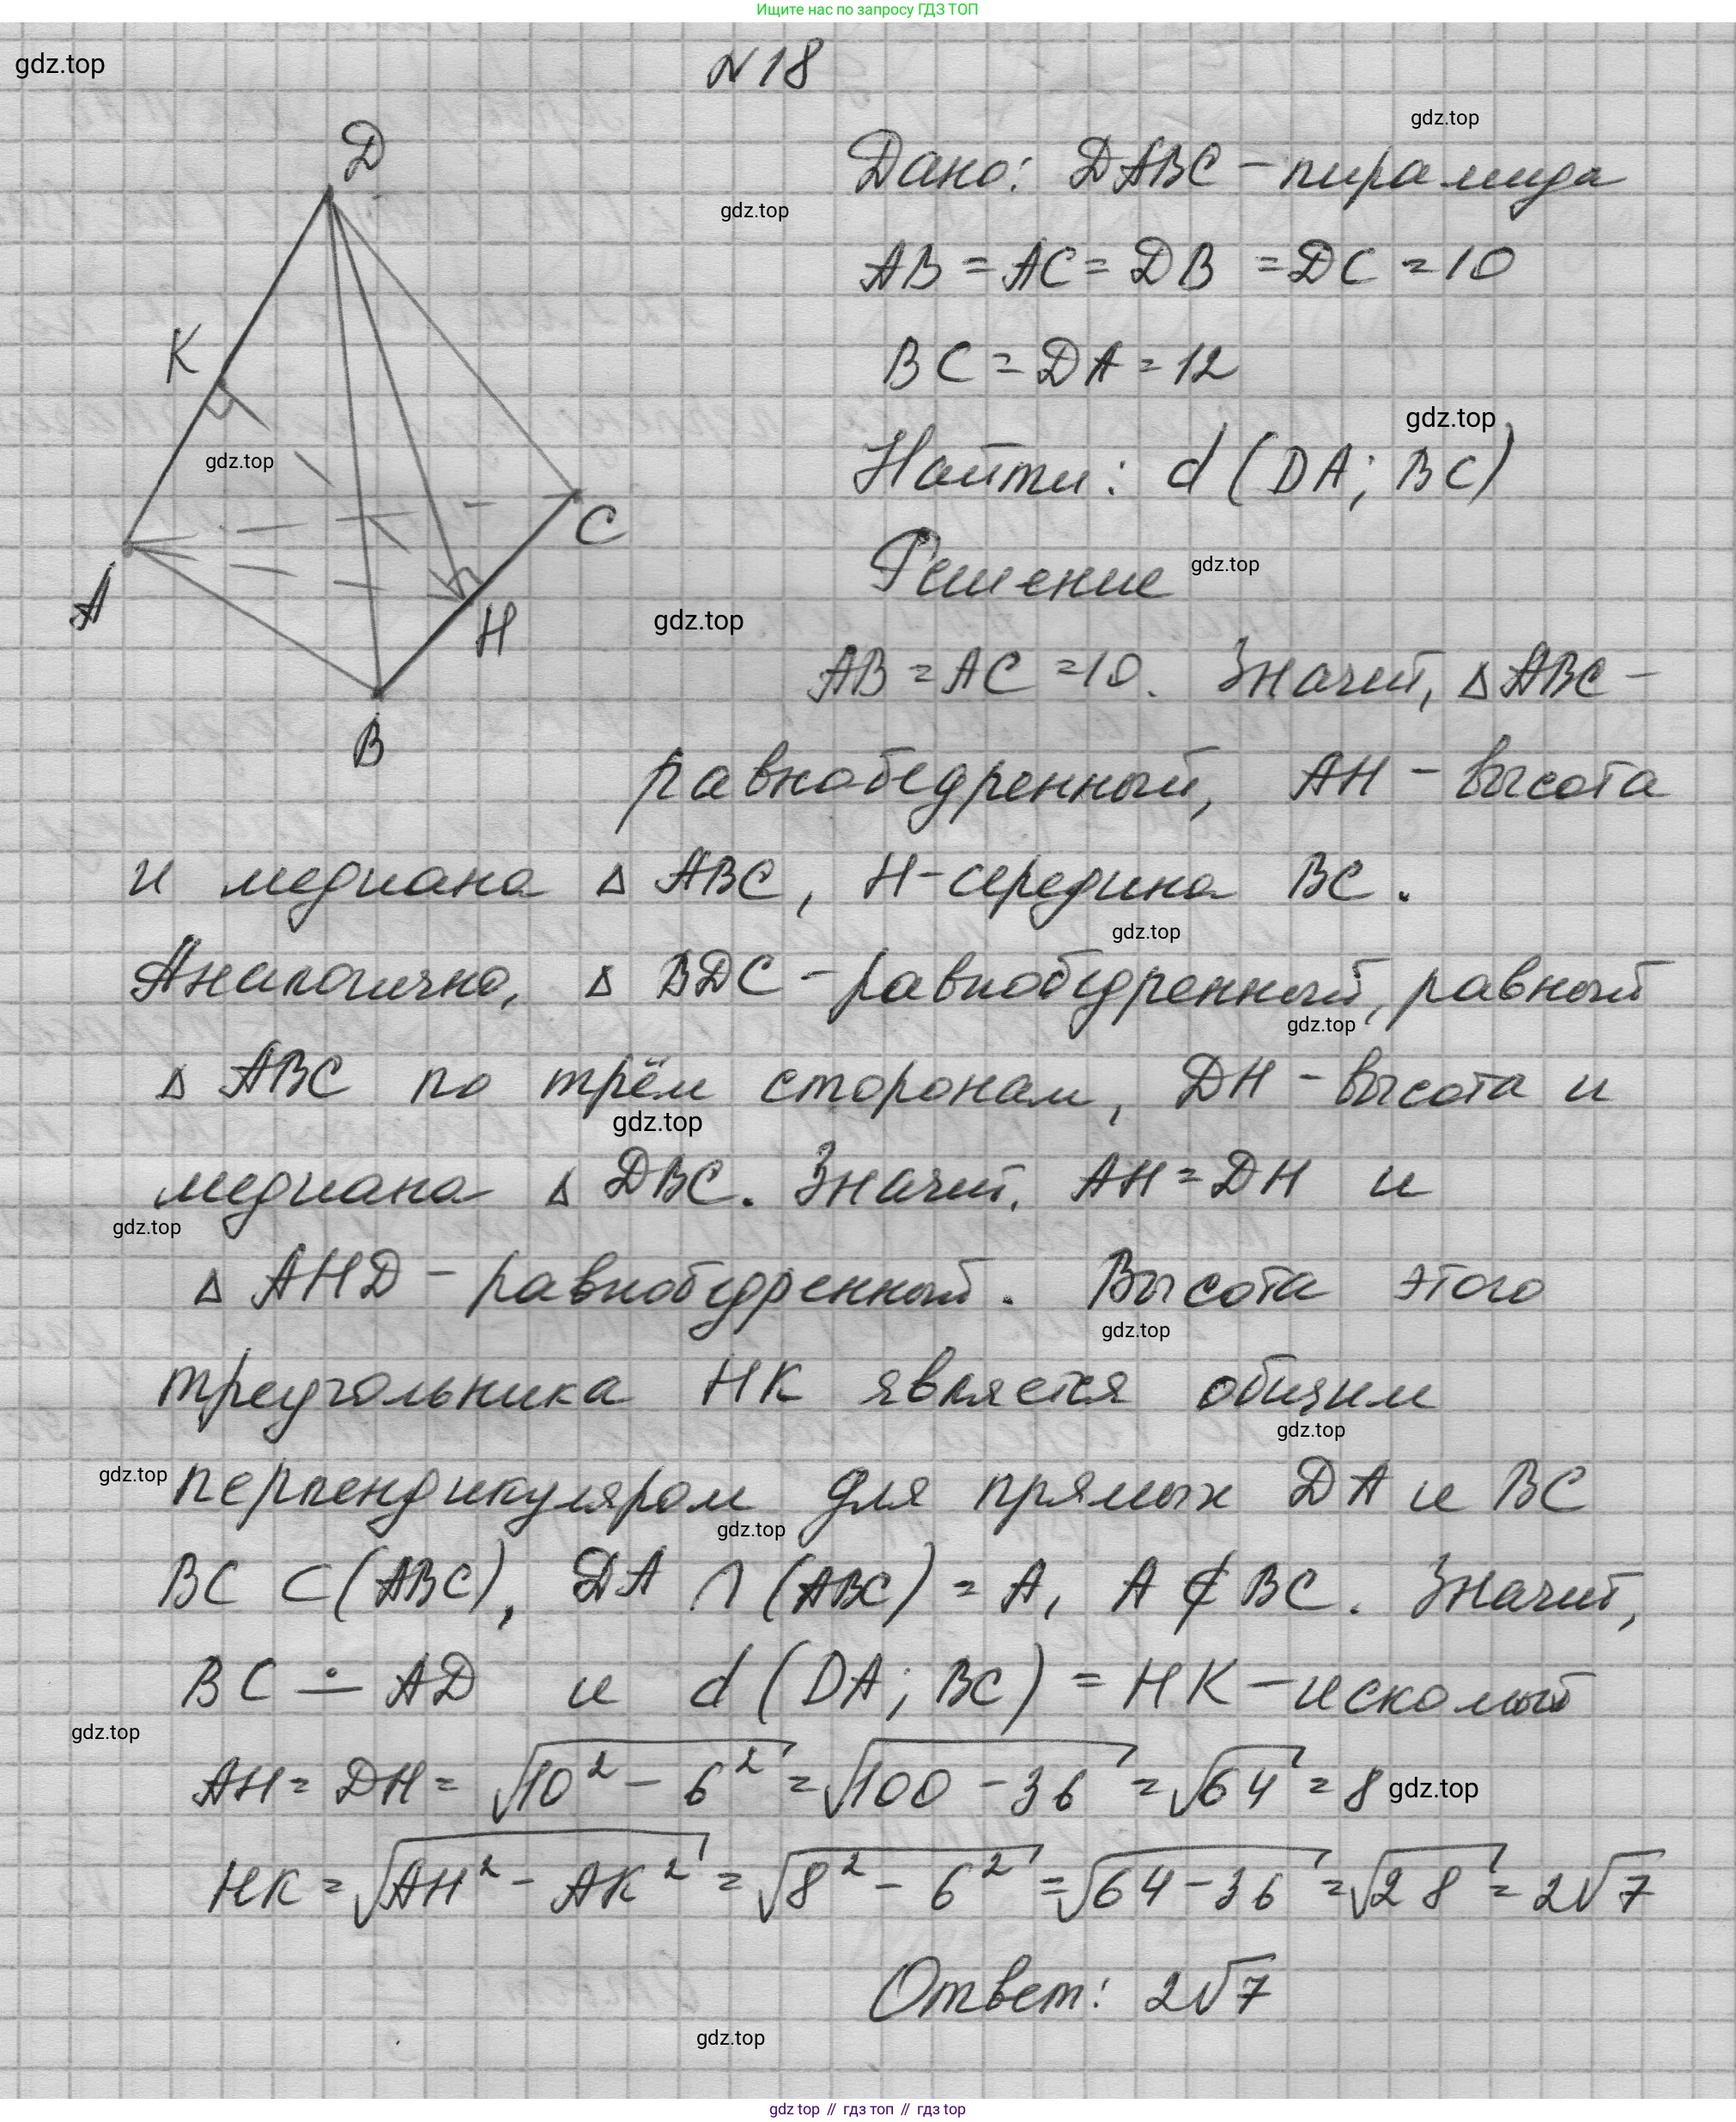 Ищите нас по запросу ГДЗ ТОП
gdz.top
N18
gdz.top
Д
Дано: DABC - пирамида
gdz.top
AB = AC = DB = DC = 10
K
BC = DA = 12
gdz.top
gdz.top
Найти: d (DA; BC)
C
Решение
gdz.top
A
H
gdz.top
AB = AC = 10. Значит, △ABC -
B
равнобедренный, AH - высота
и медиана △ ABC, H - середина BC.
gdz.top
Аналогично, △ BDC - равнобедренный, равный
gdz.top
△ ABC по трём сторонам, DH - высота и
gdz.top
медиана △ DBC. Значит, AH = DH и
gdz.top
△ AHD - равнобедренный. Высота этого
gdz.top
треугольника HK является общим
gdz.top
gdz.top
перпендикуляром для прямых DA и BC
gdz.top
BC ⊂ (ABC), DA ∩ (ABC) = A, A ∉ BC. Значит,
BC ∸ AD и d (DA; BC) = HK - искомый
gdz.top
AH = DH = √10² - 6² = √100 - 36 = √64 = 8
gdz.top
HK = √AH² - AK² = √8² - 6² = √64 - 36 = √28 = 2√7
Ответ: 2√7
gdz.top
gdz top // гдз топ // гдз top